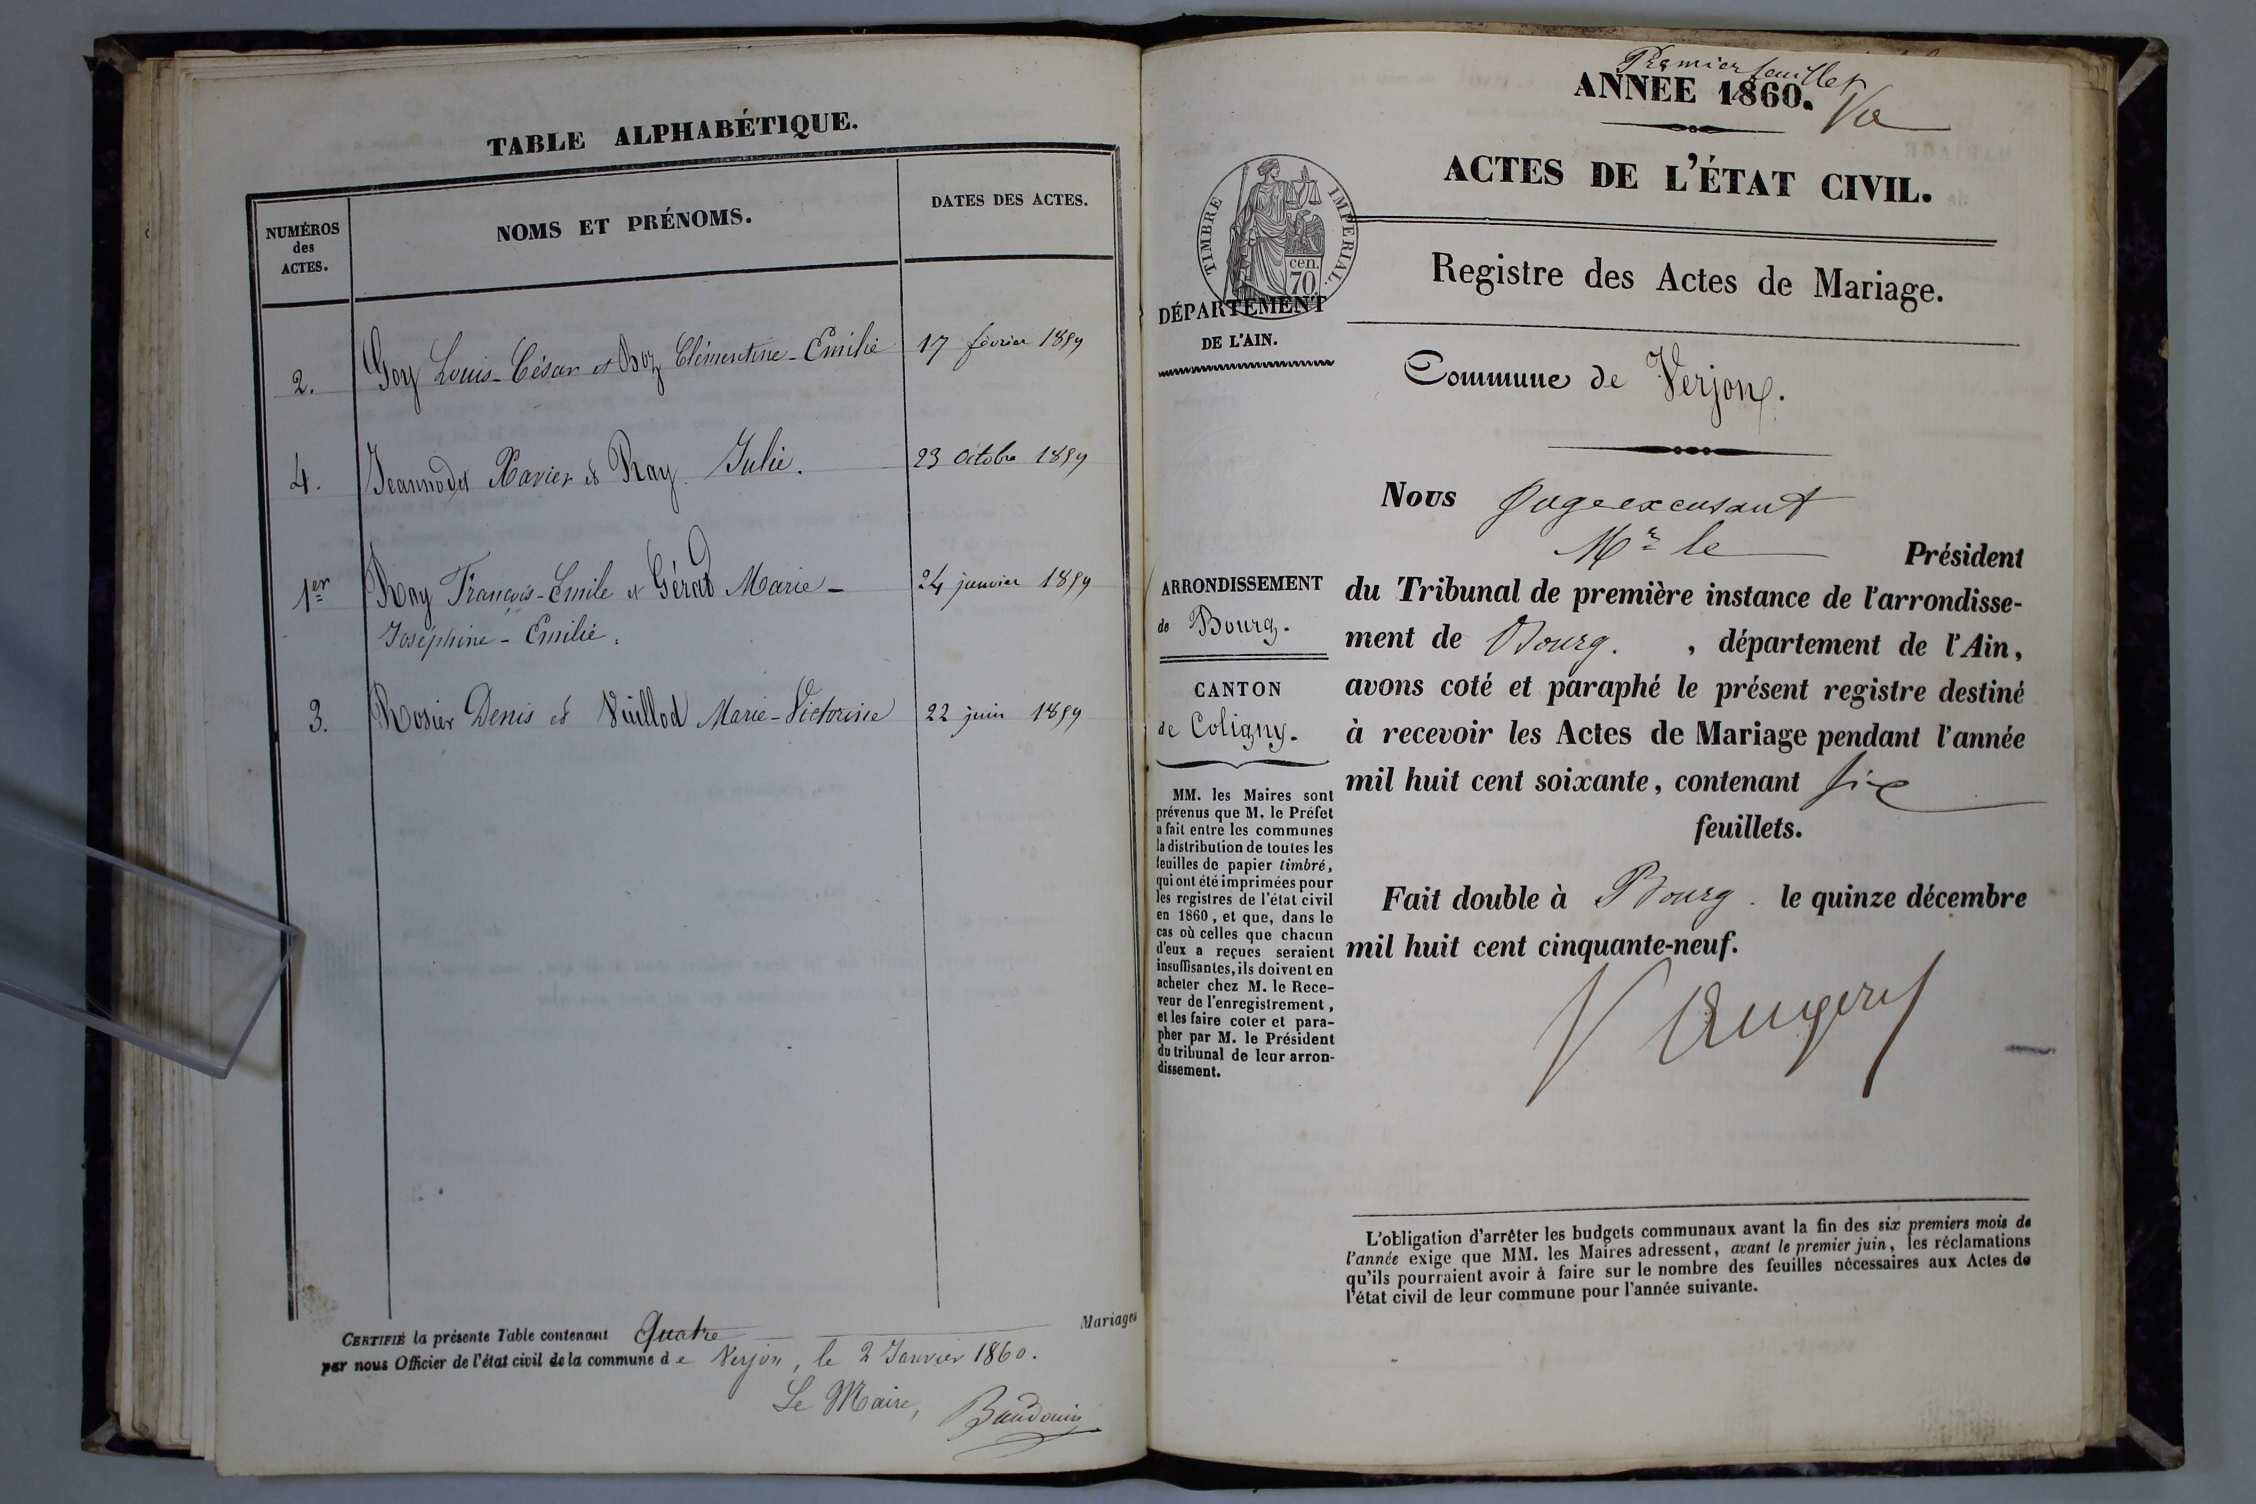 TABLE ALPHABÉTIQUE.
NUMÉROS
des
ACTES.
NOMS ET PRÉNOMS.
DATES DES ACTES.
2. Goy Louis-César et Boz Clémentine-Emilie 17 février 1859
4. Jeannodet Xavier et Ray Julie. 23 octobre 1859
1er Ray François-Emile et Gérad Marie- 24 janvier 1859
Joséphine-Emilie.
3. Rosier Denis et Vuillod Marie-Victorine 22 juin 1859
CERTIFIÉ la présente Table contenant Quatre Mariages
par nous Officier de l'état civil de la commune de Verjon, le 2 Janvier 1860.
Le Maire, Baudouin
Premier feuillet
ANNEE 1860.
ACTES DE L'ÉTAT CIVIL.
TIMBRE IMPERIAL.
cen.
70
DÉPARTEMENT
DE L'AIN.
Registre des Actes de Mariage.
Commune de Verjon.
ARRONDISSEMENT
de Bourg.
CANTON
de Coligny.
MM. les Maires sont
prévenus que M. le Préfet
a fait entre les communes
la distribution de toutes les
feuilles de papier timbré,
qui ont été imprimées pour
les registres de l'état civil
en 1860, et que, dans le
cas où celles que chacun
d'eux a reçues seraient
insuffisantes, ils doivent en
acheter chez M. le Rece-
veur de l'enregistrement,
et les faire coter et para-
pher par M. le Président
du tribunal de leur arron-
dissement.
Nous Juge excusant
Mr le Président
du Tribunal de première instance de l'arrondisse-
ment de Bourg. , département de l'Ain,
avons coté et paraphé le présent registre destiné
à recevoir les Actes de Mariage pendant l'année
mil huit cent soixante, contenant six
feuillets.
Fait double à Bourg. le quinze décembre
mil huit cent cinquante-neuf.
L'obligation d'arrêter les budgets communaux avant la fin des six premiers mois de
l'année exige que MM. les Maires adressent, avant le premier juin, les réclamations
qu'ils pourraient avoir à faire sur le nombre des feuilles nécessaires aux Actes de
l'état civil de leur commune pour l'année suivante.